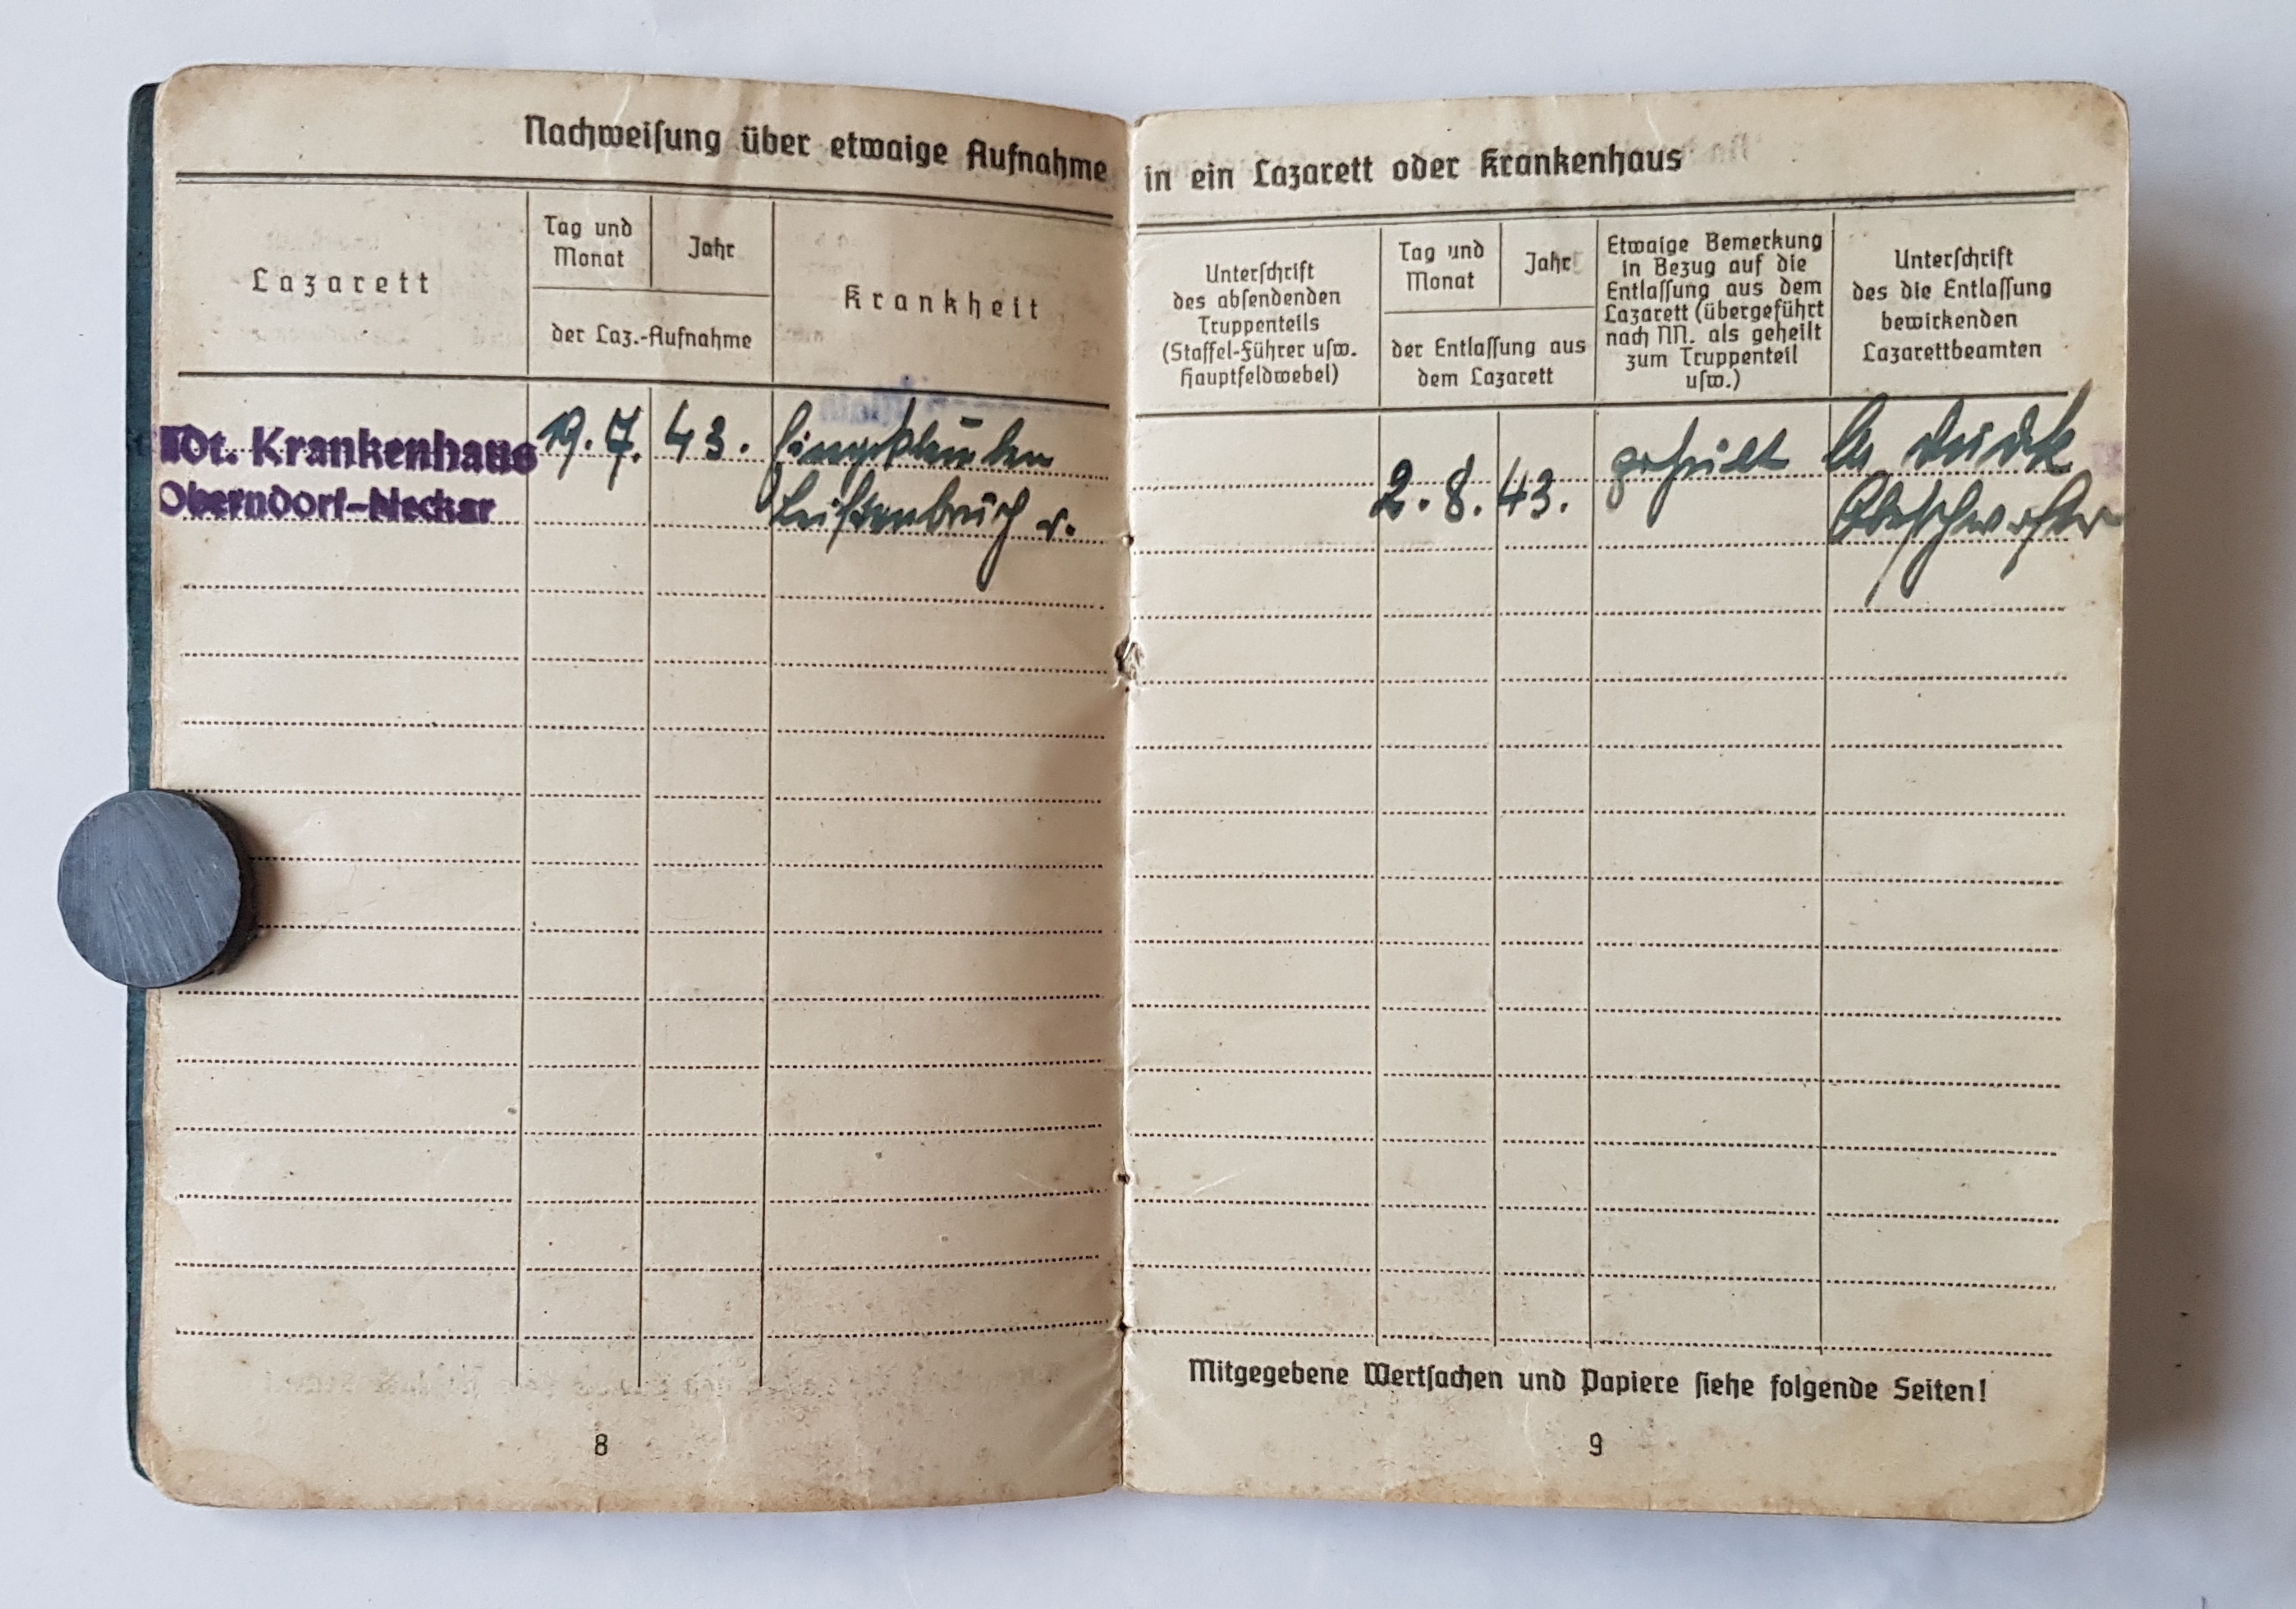 Nachweisung über etwaige Aufnahme in ein Lazarett oder Krankenhaus
Lazarett
Tag und
Monat
Jahr
der Laz.-Aufnahme
Krankheit
Unterschrift
des absendenden
Truppenteils
(Staffel-Führer usw.
Hauptfeldwebel)
Tag und
Monat
Jahr
der Entlassung aus
dem Lazarett
Etwaige Bemerkung
in Bezug auf die
Entlassung aus dem
Lazarett (übergeführt
nach NN. als geheilt
zum Truppenteil
usw.)
Unterschrift
des die Entlassung
bewirkenden
Lazarettbeamten
Krankenhaus
Oberndorf-Neckar
19. 7.
43.
Leistenbruch r.
2. 8.
43.
geheilt
Mitgegebene Wertsachen und Papiere siehe folgende Seiten!
8
9